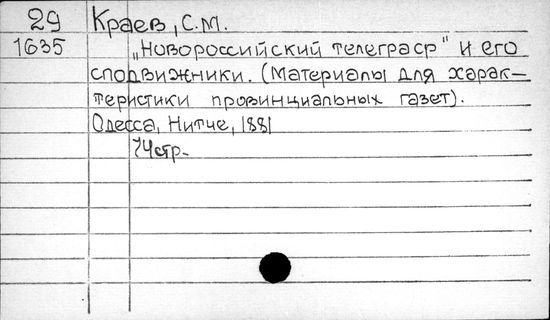 29 Краев, С.М.
1635 „Новороссийский телеграф" и его
сподвижники. (Материалы для харак-
теристики провинциальных газет).
Одесса, Нитче, 1881
74 стр.